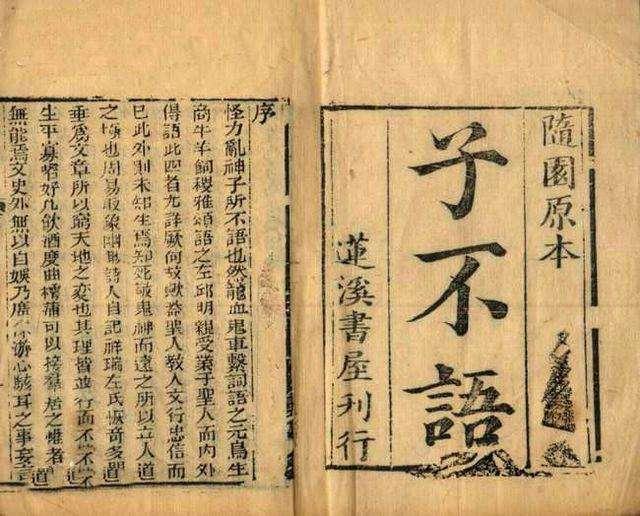 隨園原本
子不語
蓮溪書屋刊行
序
怪力亂神子所不語也然龍血鬼車繫詞語之元鳥生
商牛羊飼稷雅頌語之左邱明親受業于聖人而內外
傳語此四者尤詳厥何故歟蓋聖人教人文行忠信而
已此外則未知生焉知死敬鬼神而遠之所以立人道
之極也周易取象幽眇詩人自記祥瑞左氏恢奇多聞
垂為文章所以窮天地之變也其理皆並行而不
生平寡嗜好凡飲酒度曲樗蒲可以接羣居之歡者
無能焉文史外無以自娛乃廣游心駭耳之事妄言